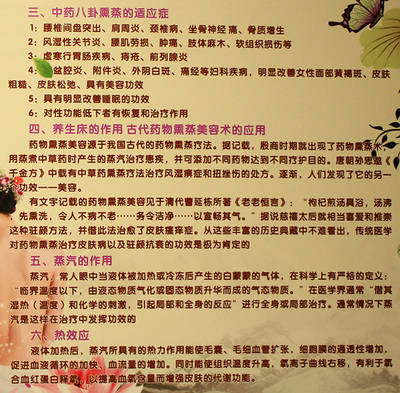 三、中药八卦熏蒸的适应症
1：腰椎间盘突出、肩周炎、颈椎病、坐骨神经痛、骨质增生
2：风湿性关节炎、腰肌劳损、肿痛、肢体麻木、软组织损伤等
3：虚寒行胃肠疾病、痔疮、前列腺炎
盆腔炎、附件炎、外阴白斑、痛经等妇科疾病，明显改善女性面部黄褐斑、皮肤
粗糙、皮肤松弛、具有美容功效
5：具有明显改善睡眠的功效
6：对性功能低下者有恢复和治疗作用
四、养生床的作用 古代药物熏蒸美容术的应用
药物熏蒸美容源于我国古代的药物熏蒸疗法。据记载，殷商时期就出现了药物熏蒸术，
用蒸煮中草药时产生的蒸汽治疗患疾，并可添加不同药物达到不同疗护目的。唐朝孙思邈《
千金方》中载有中草药熏蒸疗法治疗风湿痹症和扭挫伤的处方。逐渐，人们发现了它的另一
个功效——美容。
有文字记载的药物熏蒸美容见于清代曹延栋所著《老老恒言》：“枸杞煎汤具浴，汤沸
，先熏洗，令人不病不老……务令洁净……以宣畅其气。”据说慈禧太后就相当喜爱和推崇
这种驻颜方法，并借此法治愈了皮肤瘙痒症。从这些丰富的历史典藏中不难看出，传统医学
对药物熏蒸治疗皮肤病以及驻颜抗衰的功效是极为肯定的
五、蒸汽的作用
蒸汽，常人眼中当液体被加热或冷冻后产生的白蒙蒙的气体，在科学上有严格的定义：
“临界温度以下，由液态物质气化或固态物质升华而成的气态物质。”在医学界通常“借其
湿热（温度）和化学的刺激，引起局部和全身的反应”进行全身或局部治疗。通常情况下蒸
汽是这样在治疗中发挥功效的
六、热效应
液体加热后，蒸汽所具有的热力作用能使毛囊、毛细血管扩张，细胞膜的通透性增加，
促进血液循环的加快、血流量的增加。同时能使组织温度升高，氧离子曲线右移，有利于氧
合血红蛋白释氧，以提高血氧含量而增强皮肤的代谢功能。